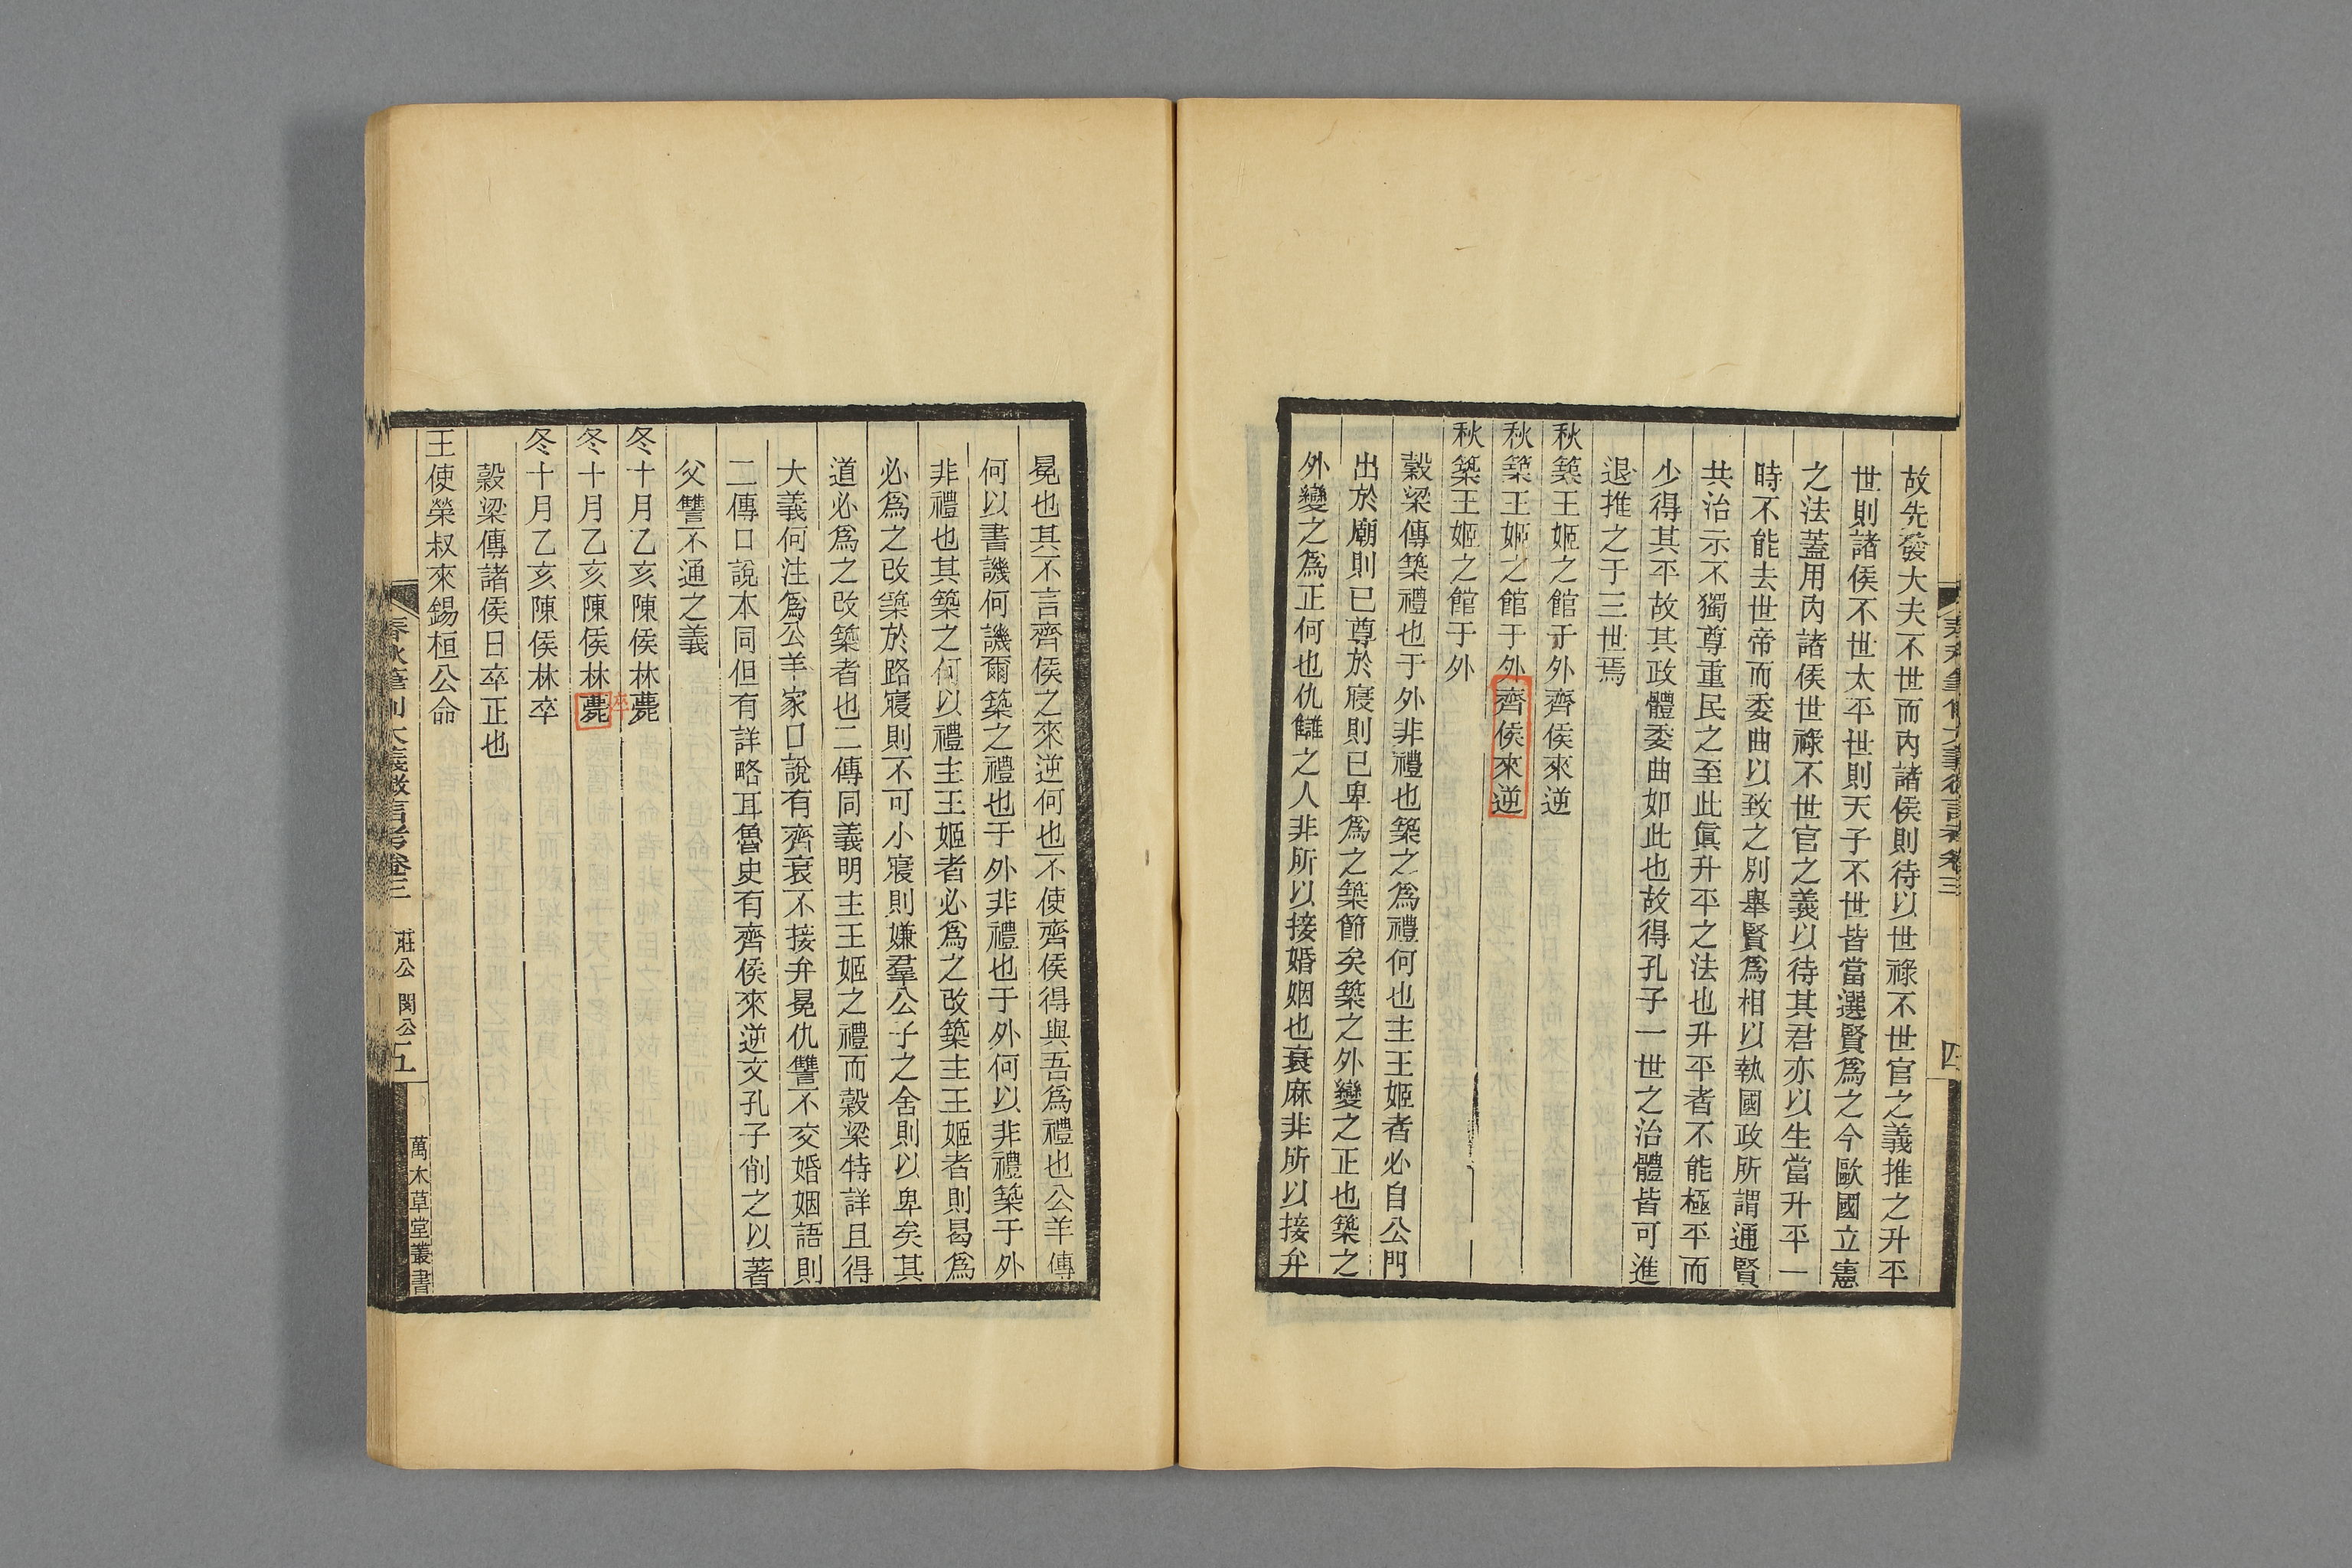 故先發大夫不世而內諸侯則待以世祿不世官之義推之升平
世則諸侯不世太平世則天子不世皆當選賢爲之今歐國立憲
之法蓋用內諸侯世祿不世官之義以待其君亦以生當升平一
時不能去世帝而委曲以致之別舉賢爲相以執國政所謂通賢
共治示不獨尊重民之至此眞升平之法也升平者不能極平而
少得其平故其政體委曲如此也故得孔子一世之治體皆可進
退推之于三世焉
秋築王姬之館于外齊侯來逆
秋築王姬之館于外齊侯來逆
秋築王姬之館于外
穀梁傳築禮也于外非禮也築之爲禮何也主王姬者必自公門
出於廟則已尊於寢則已卑爲之築節矣築之外變之正也築之
外變之爲正何也仇讎之人非所以接婚姻也衰麻非所以接弁
春秋筆削大義微言考卷三 四
冕也其不言齊侯之來逆何也不使齊侯得與吾爲禮也公羊傳
何以書譏何譏爾築之禮也于外非禮也于外何以非禮築于外
非禮也其築之何以禮主王姬者必爲之改築主王姬者則曷爲
必爲之改築於路寢則不可小寢則嫌羣公子之舍則以卑矣其
道必爲之改築者也二傳同義明主王姬之禮而穀梁特詳且得
大義何注爲公羊家口說有齊衰不接弁冕仇讐不交婚姻語則
二傳口說本同但有詳略耳魯史有齊侯來逆文孔子削之以著
父讐不通之義
冬十月乙亥陳侯林薨
卒
冬十月乙亥陳侯林薨
冬十月乙亥陳侯林卒
穀梁傳諸侯日卒正也
王使榮叔來錫桓公命
春秋筆削大義微言考卷三 莊公 閔公 五 萬木草堂叢書